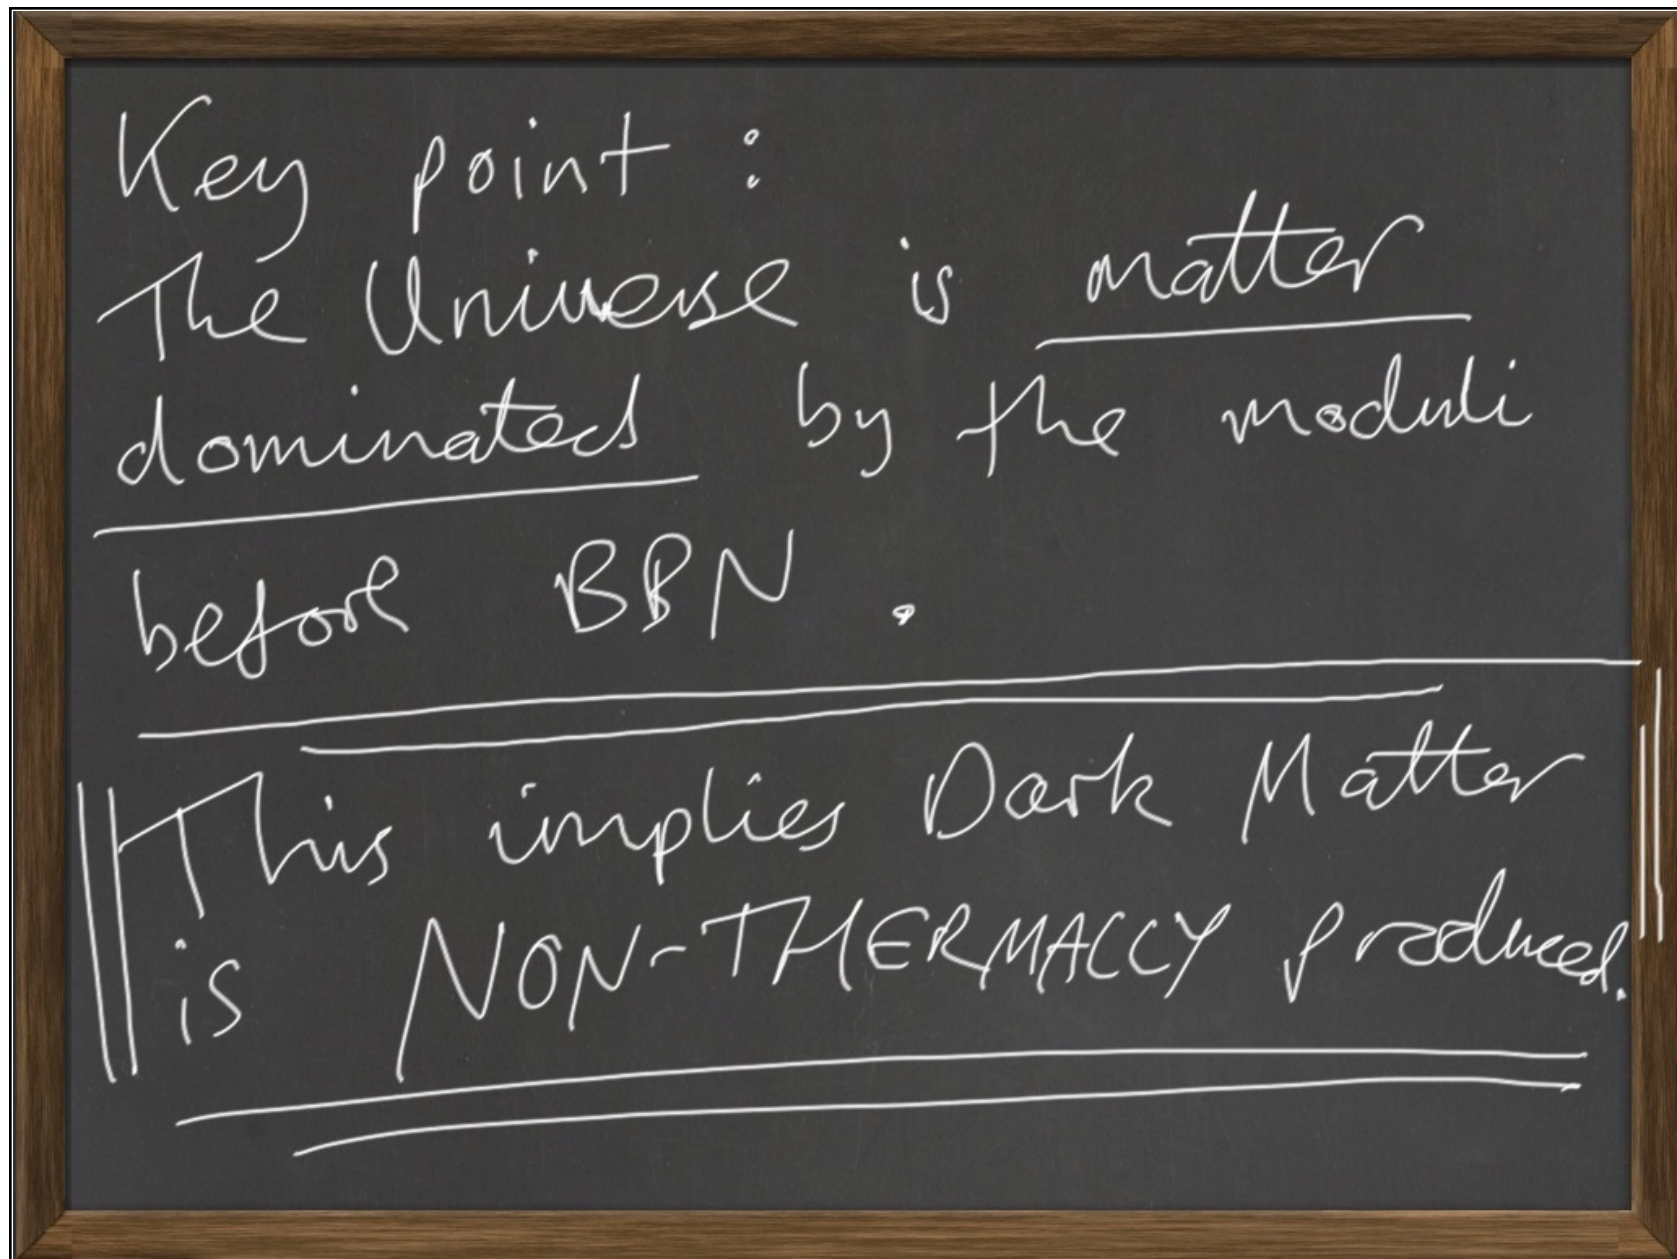 Key point :
The Universe is matter
dominated by the moduli
before BBN .
This implies Dark Matter
is NON-THERMALLY produced.